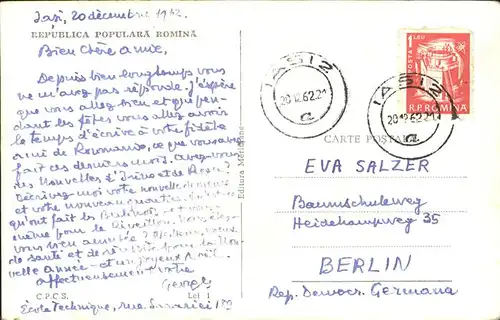 Iași, 20 décembre 1962.
REPUBLICA POPULARA ROMINA
Bien chère amie,
Depuis bien longtemps vous
ne m'avez pas répondu. J'espère
que vous allez bien et que pen-
dant les fêtes vous allez avoir
le temps d'écrire à votre fidèle
ami de Roumanie, ce que vous avez
fait ces derniers mois. Avez-vous
des nouvelles d'
Décrivez-moi votre nouvelle demeure
et votre nouveau quartier.
qu'ont fait les
même pour le Réveillon.
vous bien
de santé et de pour la Nou-
velle année - et un joyeux Noël.
affectueusement votre
Georges
C.P.C.S. Lei 1
École Technique, rue 189
Editura Meridiane
CARTE POSTALA
IASI 2
20.12.62.21
a
IASI 2
20.12.62.21
a
POSTA 1 LEU
R.P.ROMINA
EVA SALZER
Baumschulenweg
Heidekampweg 35
BERLIN
Rep. Democr. Germana